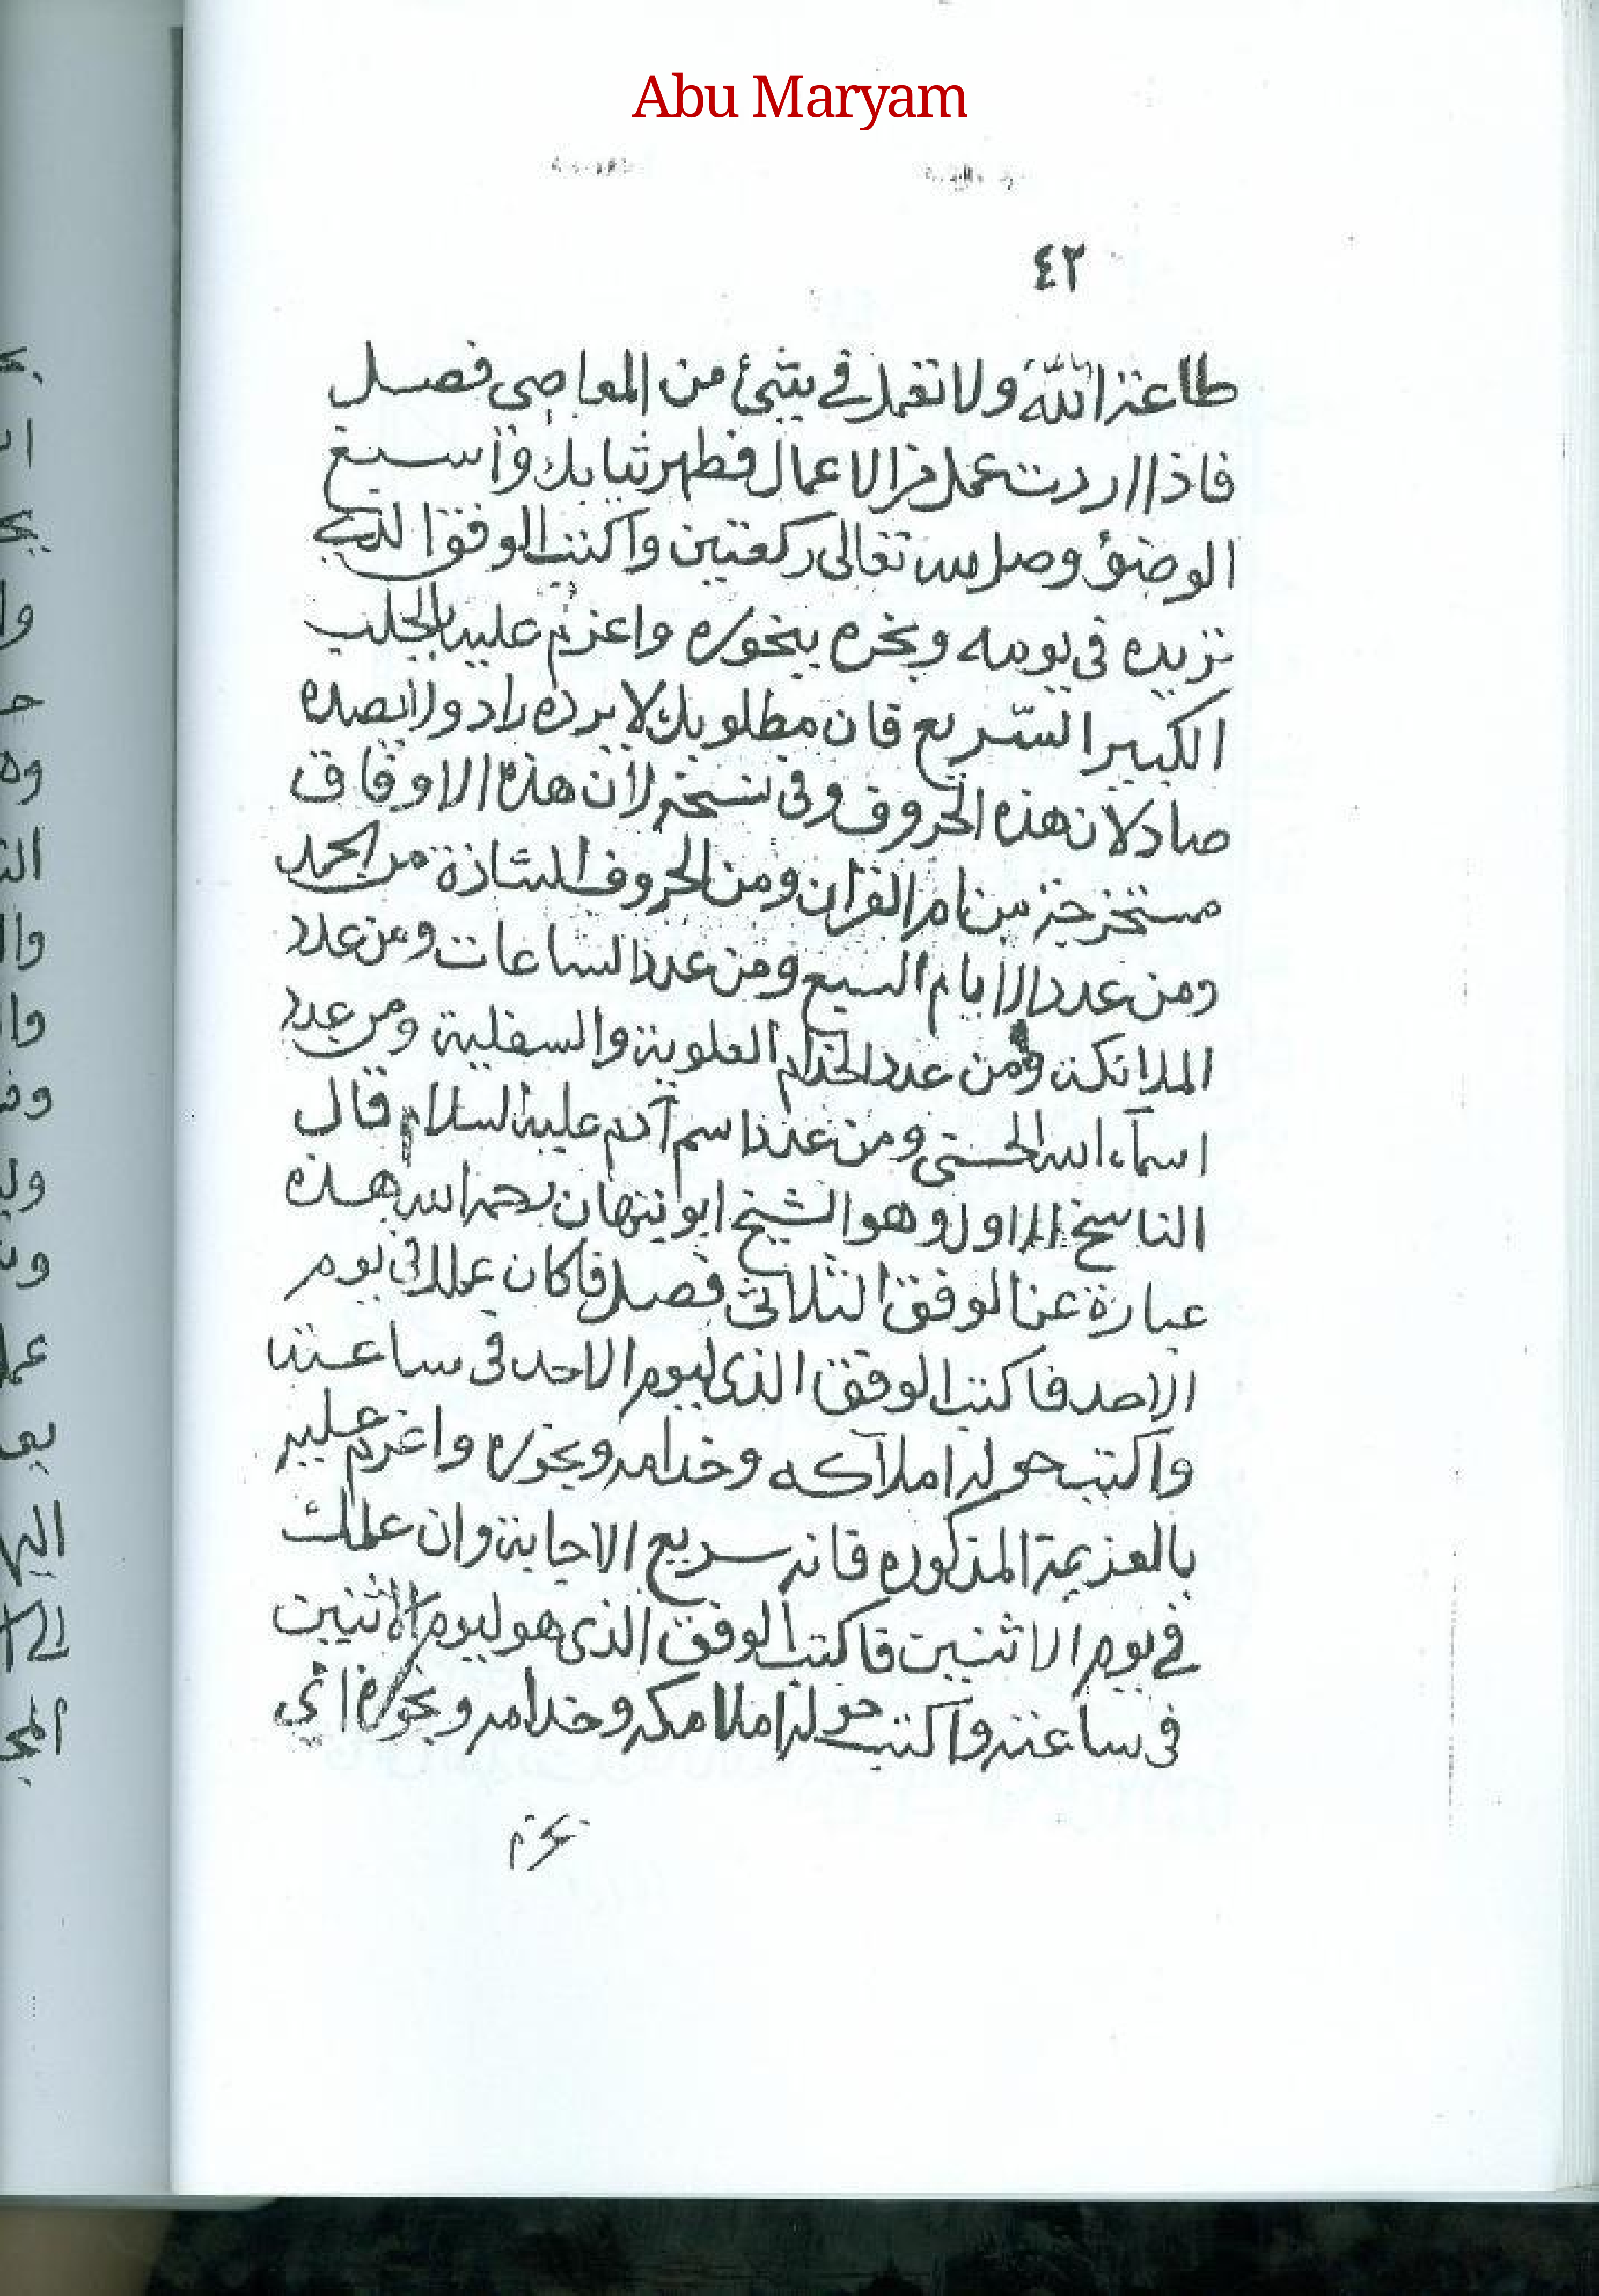 Abu Maryam
٤٢
طاعة الله ولا تعمل في شيئ من المعاصي فصل
فاذا اردت عمل من الاعمال فطهر ثيابك واسبغ
الوضؤ وصل لله تعالى ركعتين واكتب الوفق الذي
تريده في يومه وبخره ببخوره واعزم عليه بالجلب
الكبير السّريع فان مطلوبك لا يرده راد ولا يصده
صاد لان هذه الحروف وفي نسخه لان هذه الاوفاق
مستخرجة من ام القران ومن الحروف الشاذة من الحمد
ومن عدد الايام السبع ومن عدد الساعات ومن عدد
الملائكة ومن عدد الخدام العلوية والسفلية ومن عدد
اسماء الله الحسنى ومن عدد اسم آدم عليه السلام قال
الناسخ الاول وهو الشيخ ابو نبهان رحمه الله هذه
عبارة عن الوفق الثلاثي فصل فاكان عملك في يوم
الاحد فاكتب الوفق الذي ليوم الاحد في ساعته
واكتب حوله املاكه وخدامه وبخوره واعزم عليه
بالعزيمة المذكوره فانه سريع الاجابة وان عملك
في يوم الاثنين فاكتب الوفق الذي هو ليوم الاثنين
في ساعته واكتب حوله املامكه وخدامه وبخوره اي